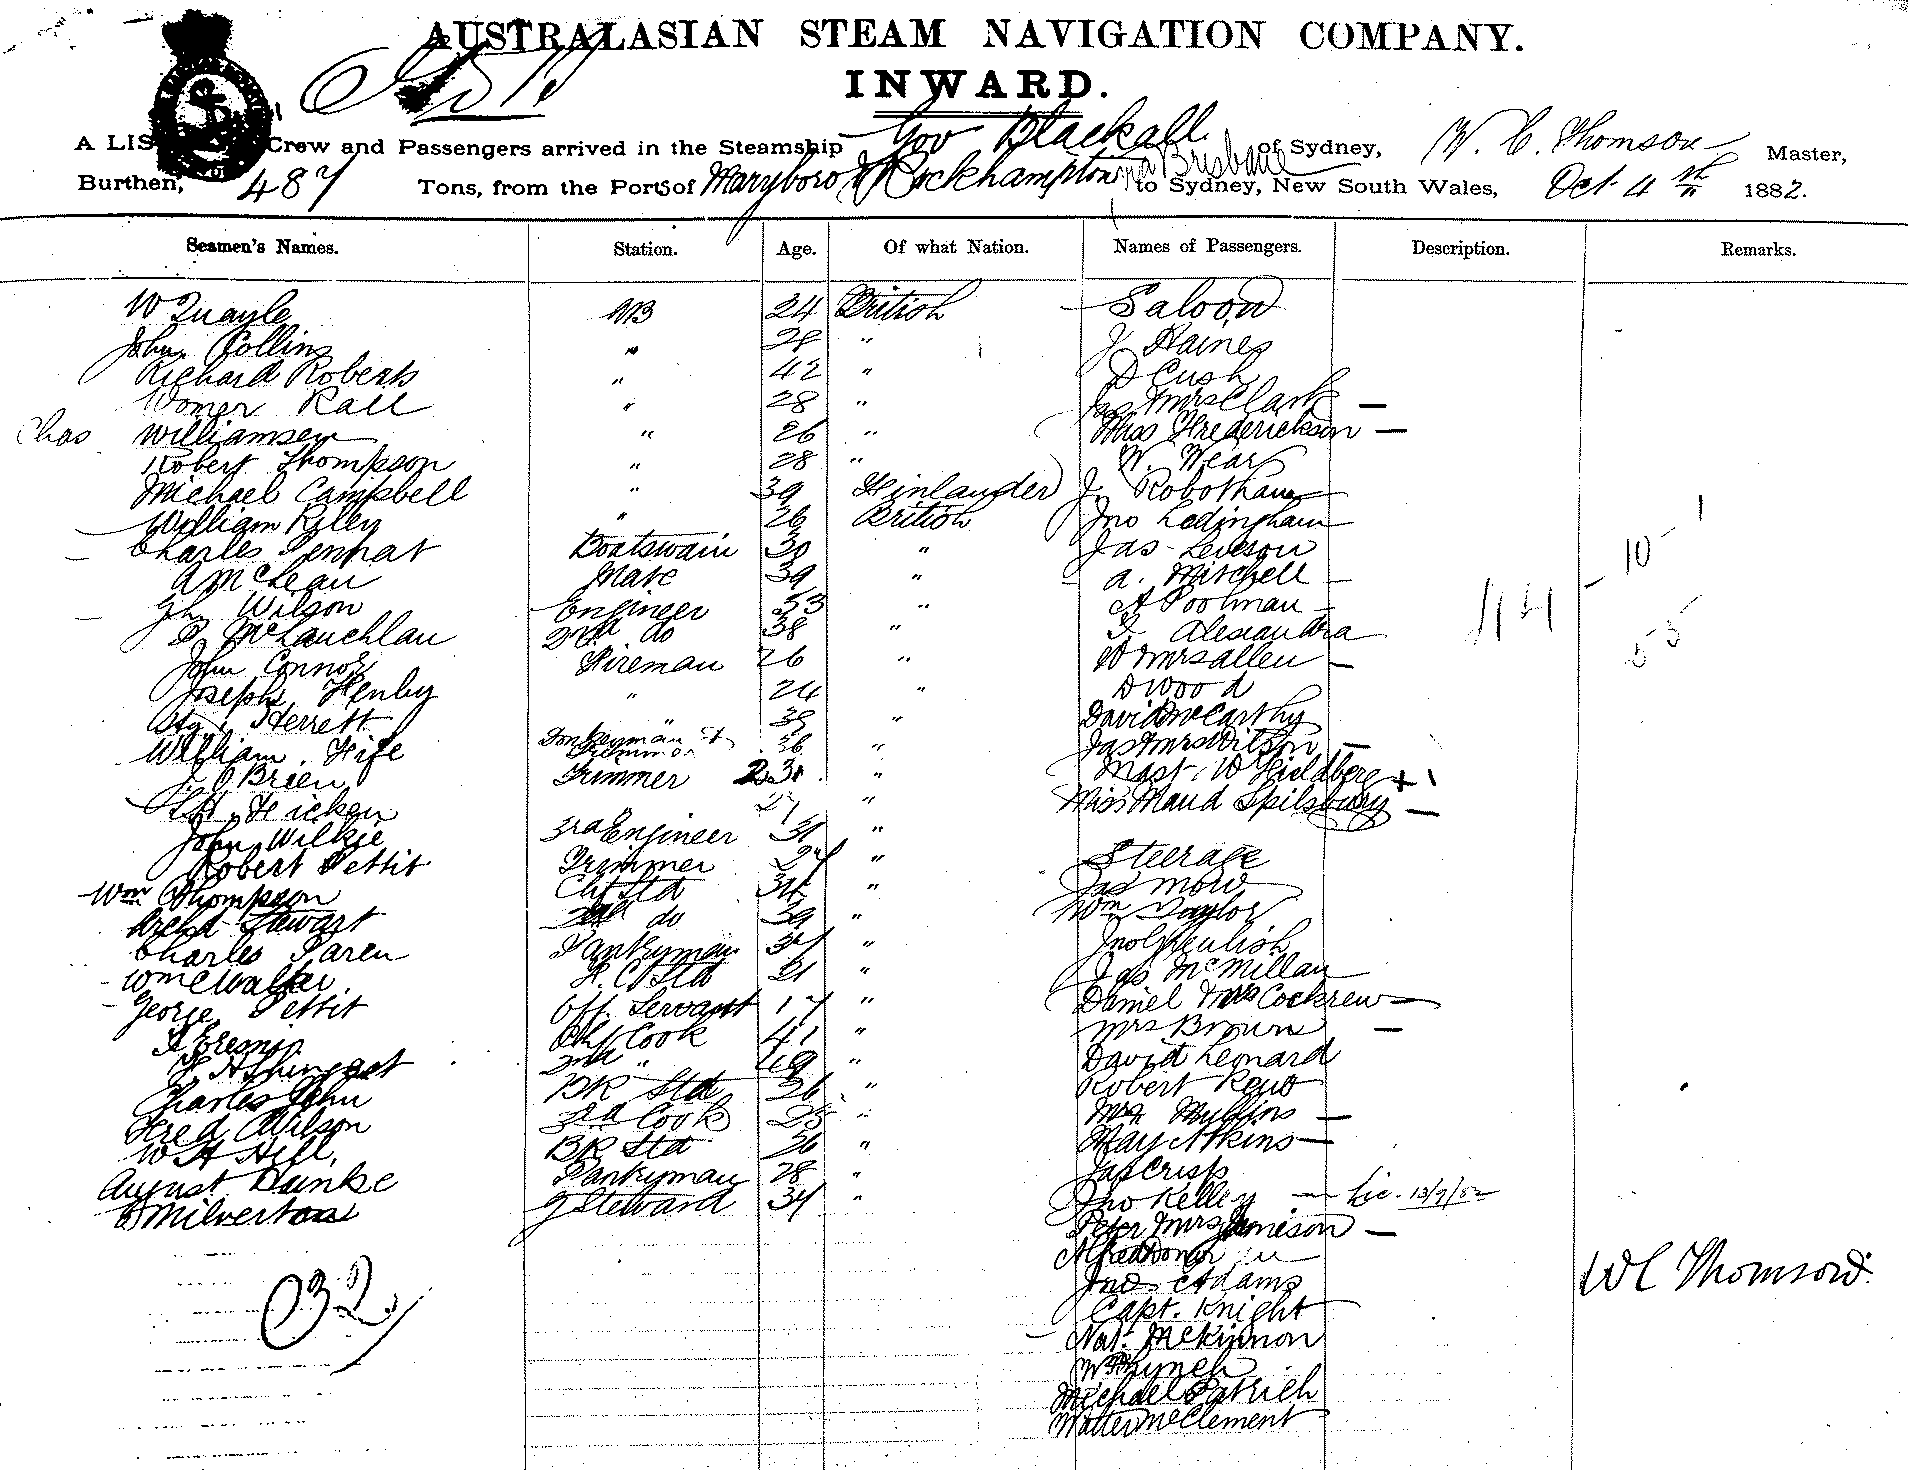 AUSTRALASIAN STEAM NAVIGATION COMPANY.
INWARD.
A LIS Crew and Passengers arrived in the Steamship Gov Blackall of Sydney, W. C. Thomson Master,
Burthen, 487 Tons, from the Ports of Maryboro & Rockhampton via Brisbane to Sydney, New South Wales, Oct 4th 1882.
Seamen's Names. Station. Age. Of what Nation. Names of Passengers. Description. Remarks.
W Quayle AB 24 British Saloon
John Collins " 28 " J Haines
Richard Roberts " 42 " D Cush
Womer Rall " 28 " Jas & Mrs Clark —
Chas Williamsen " 26 " Miss Frederickson —
Robert Thompson " 28 " W. Wear
Michael Campbell " 39 Finlander J. Robotham
William Riley " 26 British Jno Ledingham
Charles Pennat Boatswain 30 " Jas Leveson
A McLean Mate 39 " A. Mitchell
Jh Wilson Engineer 53 " A Poolman
D McLauchlan 2nd do 38 " Alexandra
John Connor Fireman 26 " W & Mrs Allen —
Joseph Henby " 24 " D Wood
Herrett " 38 " David McCarthy
William Fife 36 " Jas & Mrs Wilson —
J O'Brien Trimmer 23 " Mast. W Hieldberg + 1
Hicken 27 " Miss Maud Spilsbury —
John Wilkie 3rd Engineer 31 "
Robert Pettit Trimmer 27 " Steerage
Wm Thompson Chf Std 34 " Jas Mow
Archd Stewart 2nd do 39 " Wm Taylor
Charles Paren Pantryman 37 " Jno Greulish
Wm C Walter F. C Std 21 " Jas McMillan
George Pettit Off. Servant 17 " Daniel & Mrs Cockrew —
Eremin Chf Cook 41 " Mrs Brown —
2nd " 49 " David Leonard
Charles John BR Std 26 " Robert
Fred Wilson 3rd Cook 25 " Mrs Mullins —
W H Hill BR Std 26 " May Atkins —
August Heinke Pantryman 28 " Jas Crisp
C Milverton Steward 34 " Jno Kelley — Lic. 13/9/82
Peter & Mrs Jamieson —
Alfred
Jno Adams
Capt. Knight
Nat. McKinnon
W Lynch
Michael Patrick
Walter McClement
114
10 1
55
32
W C Thomson